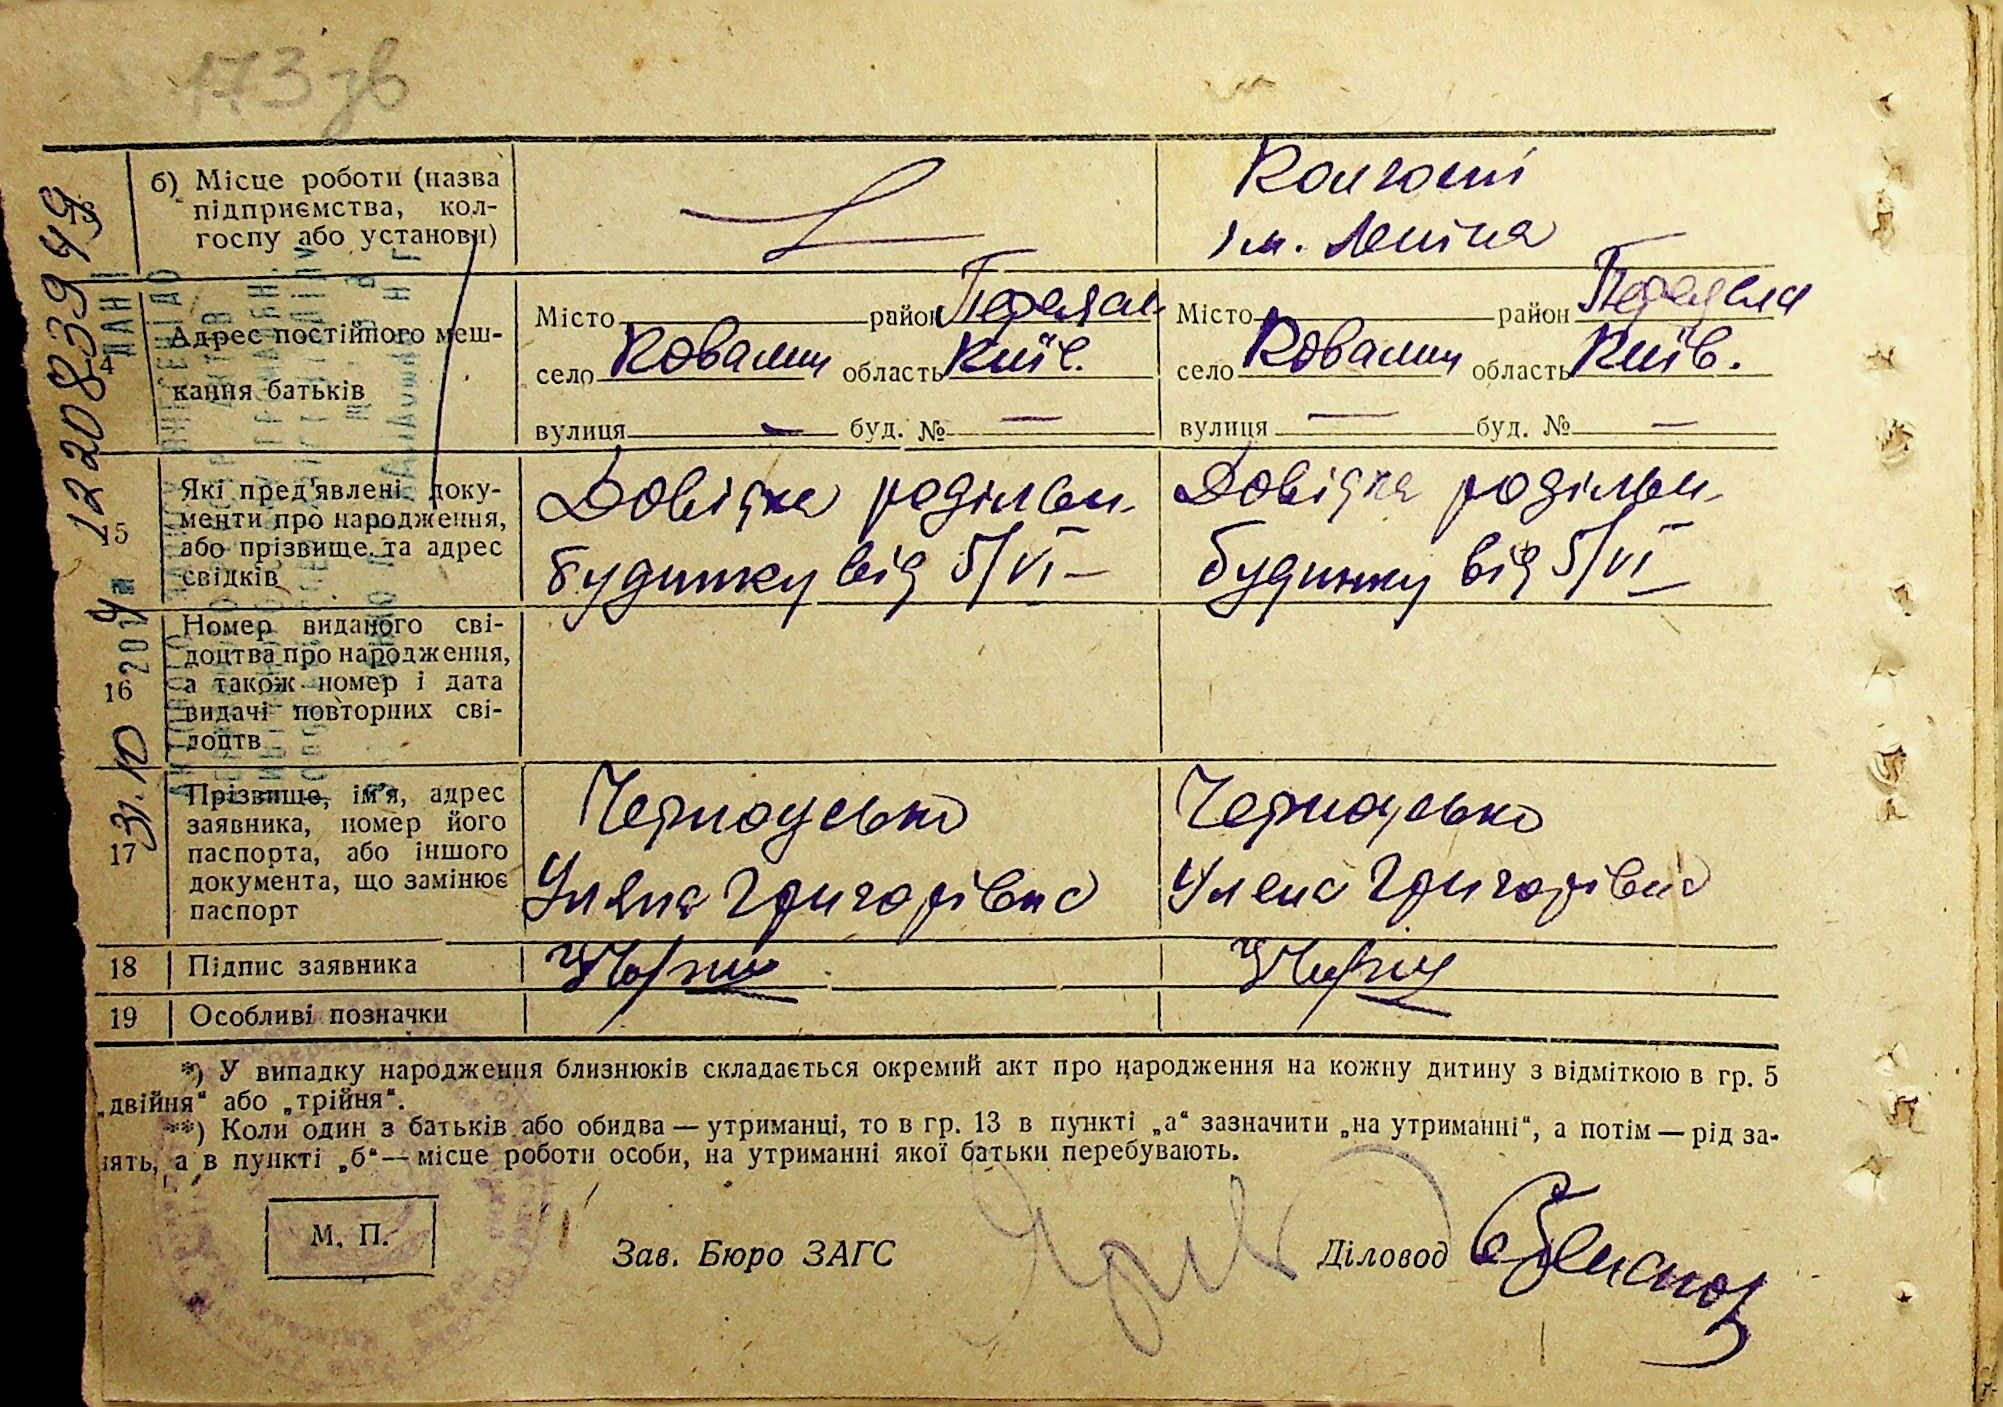 173 зв
б) Місце роботи (назва
підприємства, кол-
госпу або установи)
Колгосп
ім. Леніна
Адрес постійного меш-
кання батьків
Місто район Переясл
село Ковалин область Київ.
вулиця — буд. № —
Місто район Переясл
село Ковалин область Київ.
вулиця — буд. № —
15
Які пред'явлені доку-
менти про народження,
або прізвище та адрес
свідків
Довідка родільн.
будинку від 5/VI –
Довідка родільн.
будинку від 5/VI
16
Номер виданого сві-
доцтва про народження,
а також номер і дата
видачі повторних сві-
доцтв
17
Прізвище, ім'я, адрес
заявника, номер його
паспорта, або іншого
документа, що замінює
паспорт
Черноусько
Уляна Григорівна
Черноусько
Уляна Григорівна
18 Підпис заявника
19 Особливі позначки
*) У випадку народження близнюків складається окремий акт про народження на кожну дитину з відміткою в гр. 5
„двійня“ або „трійня“.
**) Коли один з батьків або обидва — утриманці, то в гр. 13 в пункті „а“ зазначити „на утриманні“, а потім — рід за-
нять, а в пункті „б“ — місце роботи особи, на утриманні якої батьки перебувають.
М. П.
Зав. Бюро ЗАГС
Діловод
1220839449